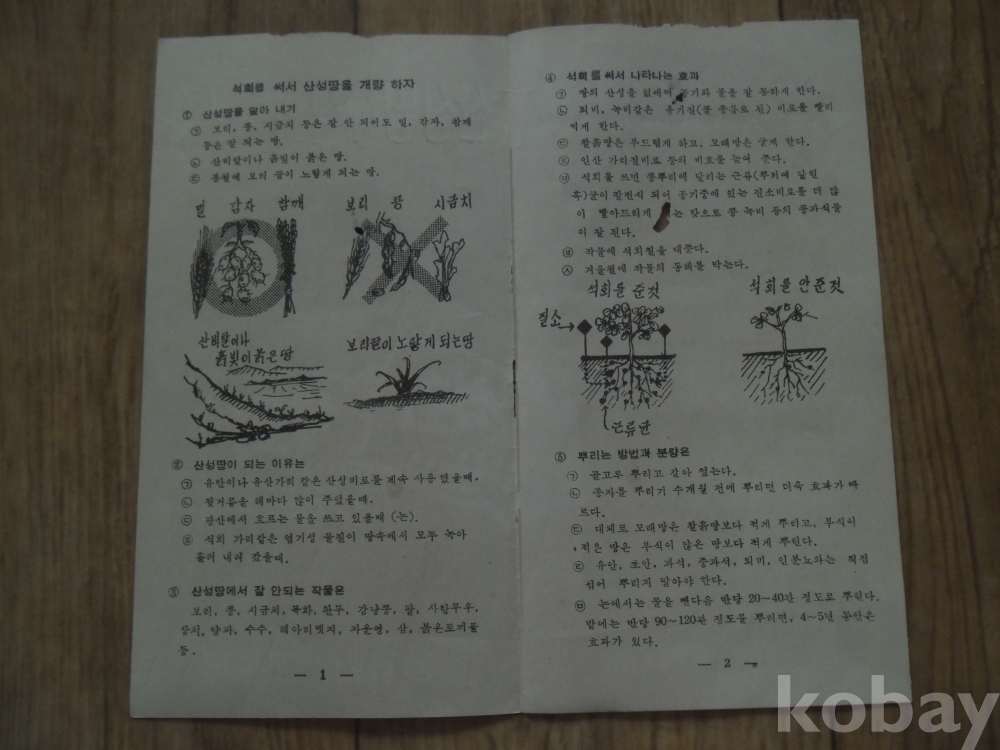 석회를 써서 산성땅을 개량 하자
① 산성땅을 알아 내기
㉠ 보리, 콩, 시금치 등은 잘 안 되어도 밀, 감자, 참깨
등은 잘 되는 땅.
㉡ 산비탈이나 흙빛이 붉은 땅.
㉢ 봄철에 보리 끝이 노랗게 되는 땅.
밀 감자 참깨
보리 콩 시금치
산비탈이나
흙빛이 붉은땅
보리끝이 노랗게 되는땅
② 산성땅이 되는 이유는
㉠ 유안이나 유산가리 같은 산성비료를 계속 사용했을때.
㉡ 풋거름을 해마다 많이 주었을때.
㉢ 광산에서 흐르는 물을 쓰고 있을때 (논).
㉣ 석회 가리같은 염기성 물질이 땅속에서 모두 녹아
흘러 내려 갔을때.
③ 산성땅에서 잘 안되는 작물은
보리, 콩, 시금치, 목화, 완두, 강낭콩, 팥, 사탕무우,
상치, 양파, 수수, 티머리벳지, 자운영, 삼, 붉은토끼풀
등.
— 1 —
④ 석회를 써서 나타나는 효과
㉠ 땅의 산성을 없애며 공기와 물을 잘 통하게 한다.
㉡ 퇴비, 녹비같은 유기질(풀 종류로 된) 비료를 빨리
썩게 한다.
㉢ 찰흙땅은 부드럽게 하고, 모래땅은 굳게 한다.
㉣ 인산 가리질비료 등의 비효를 높여 준다.
㉤ 석회를 쓰면 콩뿌리에 달리는 근류(뿌리에 달린
혹)균이 잘번식 되어 공기중에 있는 질소비료를 더 많
이 빨아드리게 는 탓으로 콩 녹비 등의 콩과식물
이 잘 된다.
㉥ 작물에 석회질을 대준다.
㉦ 겨울철에 작물의 동해를 막는다.
석회를 준것
석회를 안준것
질소
근류균
⑤ 뿌리는 방법과 분량은
㉠ 골고루 뿌리고 갈아 엎는다.
㉡ 종자를 뿌리기 수개월 전에 뿌리면 더욱 효과가 빠
르다.
㉢ 대체로 모래땅은 찰흙땅보다 적게 뿌리고, 부식이
적은 땅은 부식이 많은 땅보다 적게 뿌린다.
㉣ 유안, 초안, 과석, 중과석, 퇴비, 인분뇨와는 직접
섞어 뿌리지 말아야 한다.
㉤ 논에서는 물을 뺀다음 반당 20~40관 정도로 뿌린다.
밭에는 반당 90~120관 정도를 뿌리면, 4~5년 동안은
효과가 있다.
— 2 —
kobay